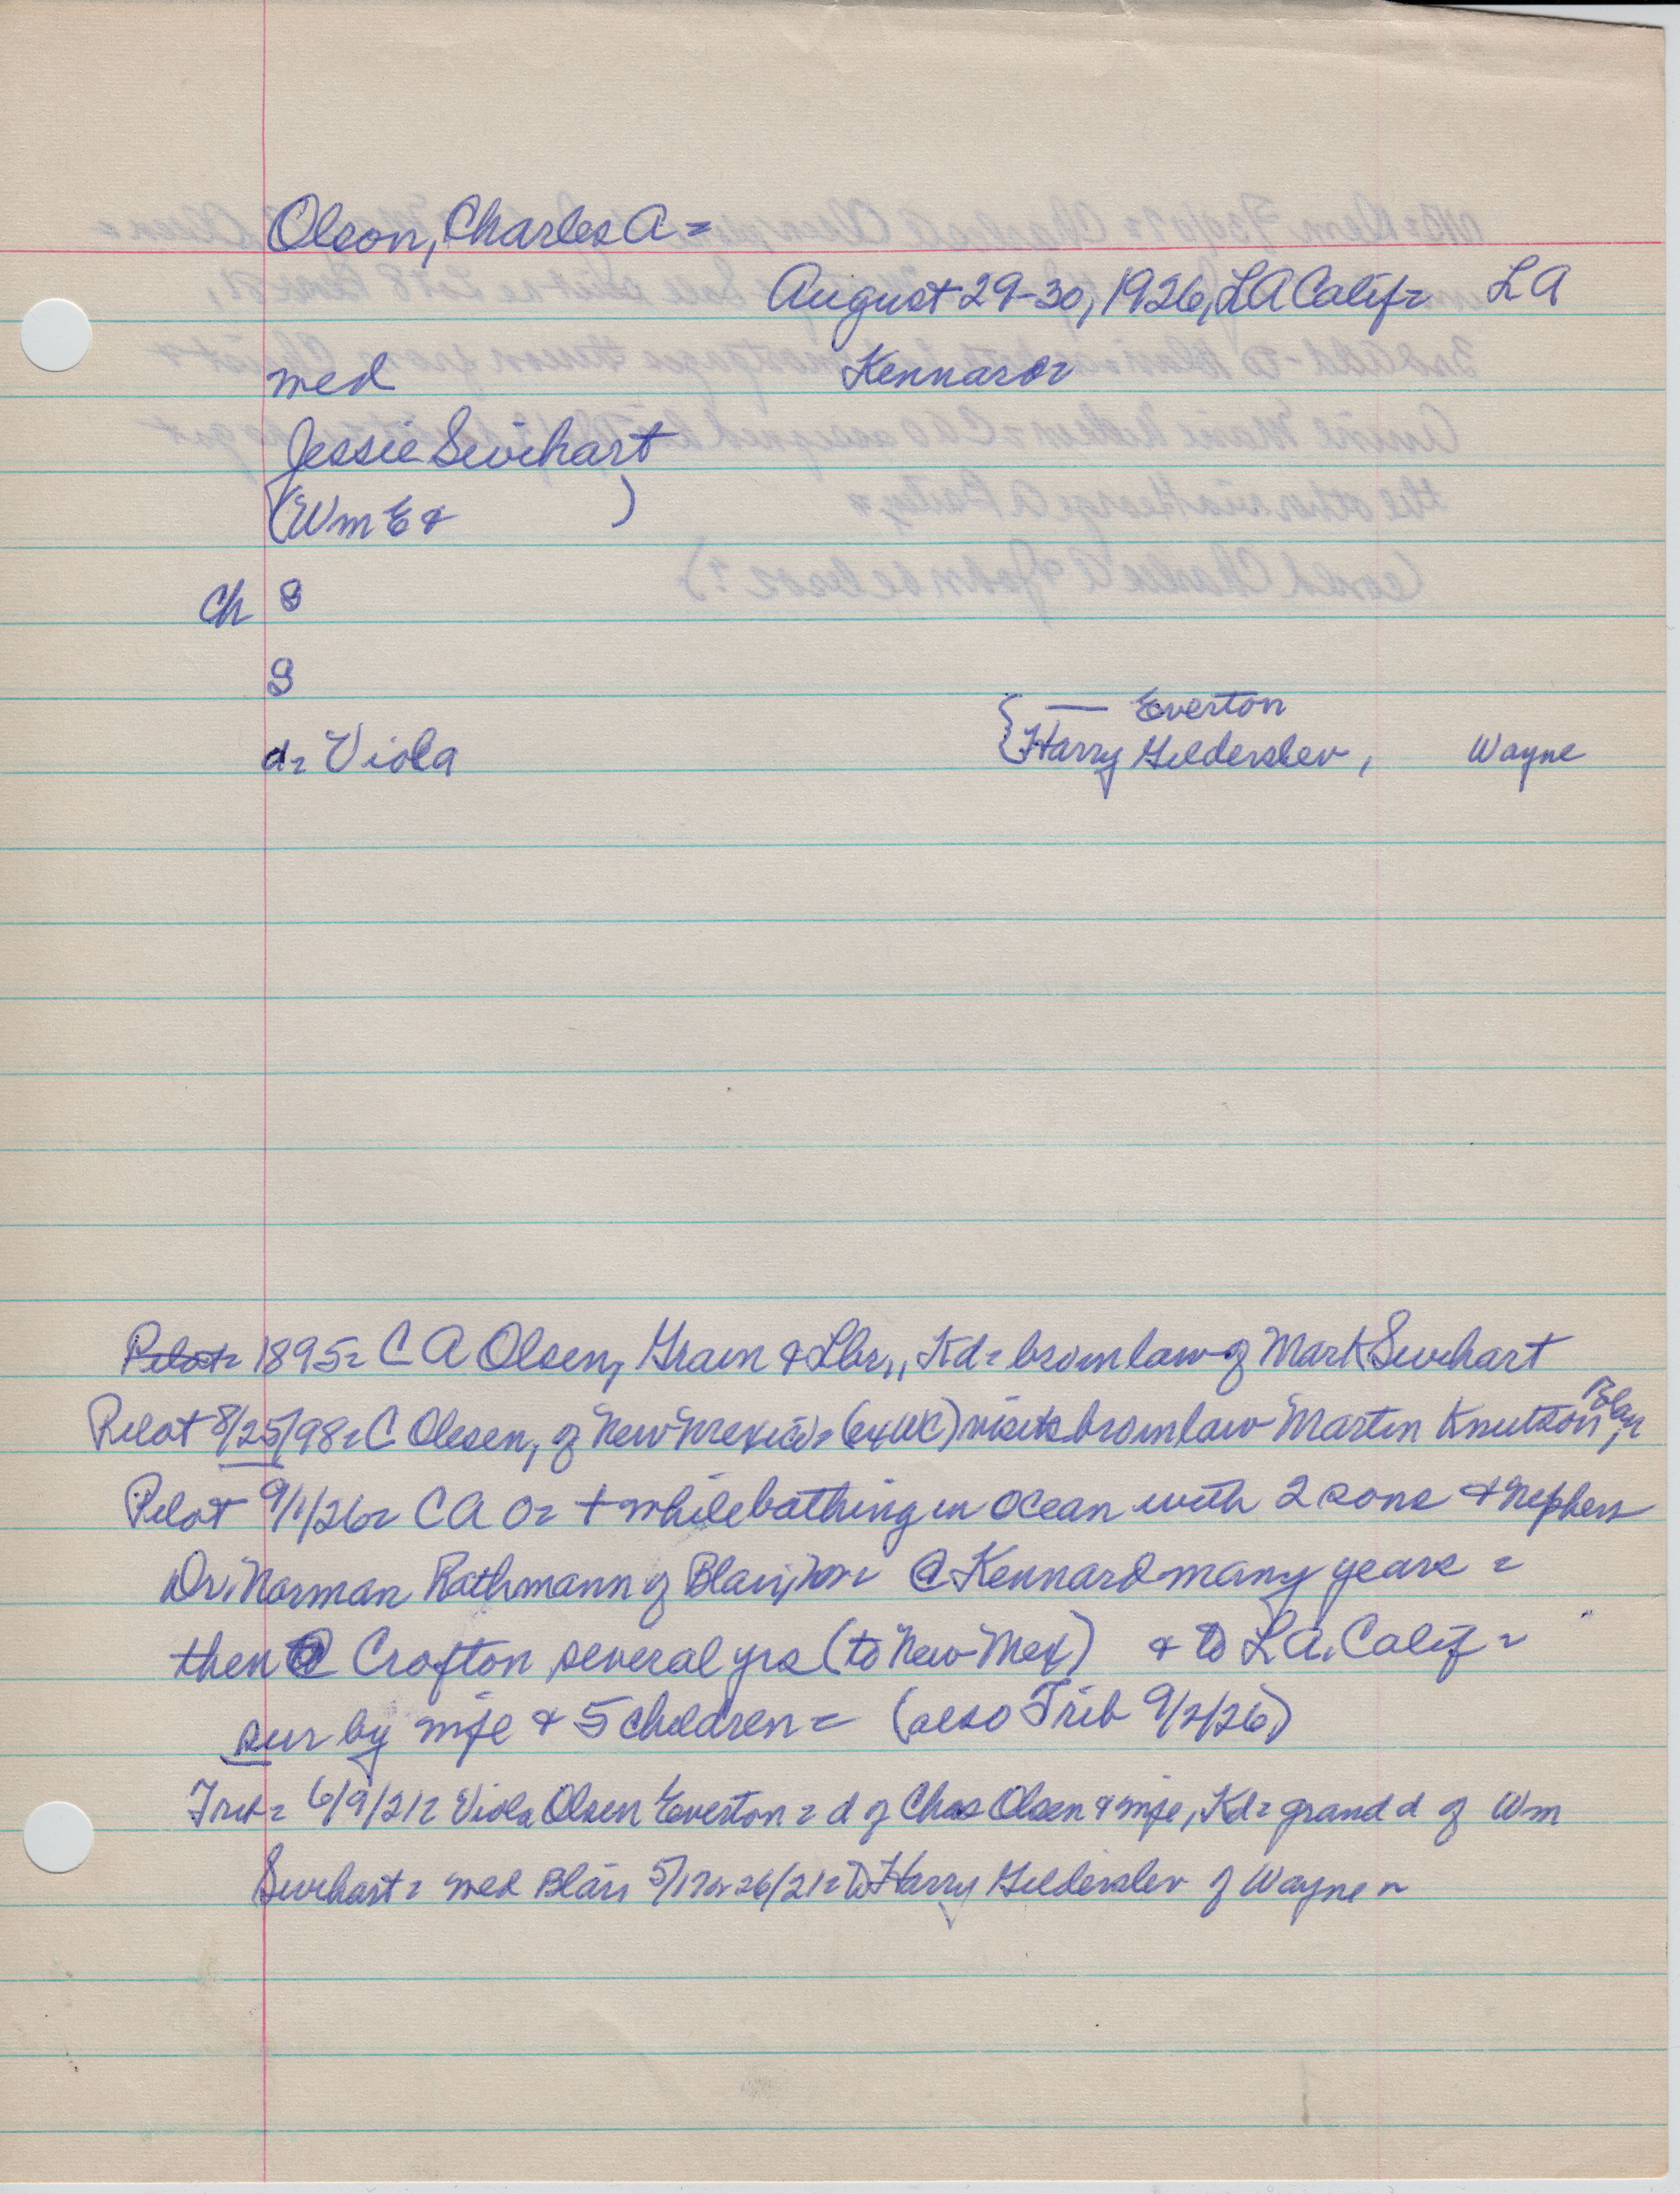 Olson, Charles A =
August 29-30, 1926, LA Calif = LA
med Kennard =
Jessie Swihart
(Wm E & )
Ch S
S
{ — Everton
d = Viola { Harry Gilderslev, Wayne
Pilot = 1895 = C A Olsen, Grain & Lbr,, Kd = bro in law of Mark Swihart
Pilot 8/25/98 = C Olesen, of New Mexico = (ex WC) visits bro in law Martin Knutson, Blair
Pilot 9/1/26 = C A O = + while bathing in ocean with 2 sons & nephew
Dr. Norman Rathmann of Blair, @ Kennard many years =
then @ Crofton several yrs (to New Mex) & to LA. Calif =
sur by wife & 5 children = (also Trib 9/2/26)
Trib = 6/9/21 = Viola Olsen Everton = d of Chas Olsen & wife, Kd = grand d of Wm
Swihart = med Blair 5/17 or 26/21 = to Harry Gilderslev of Wayne =